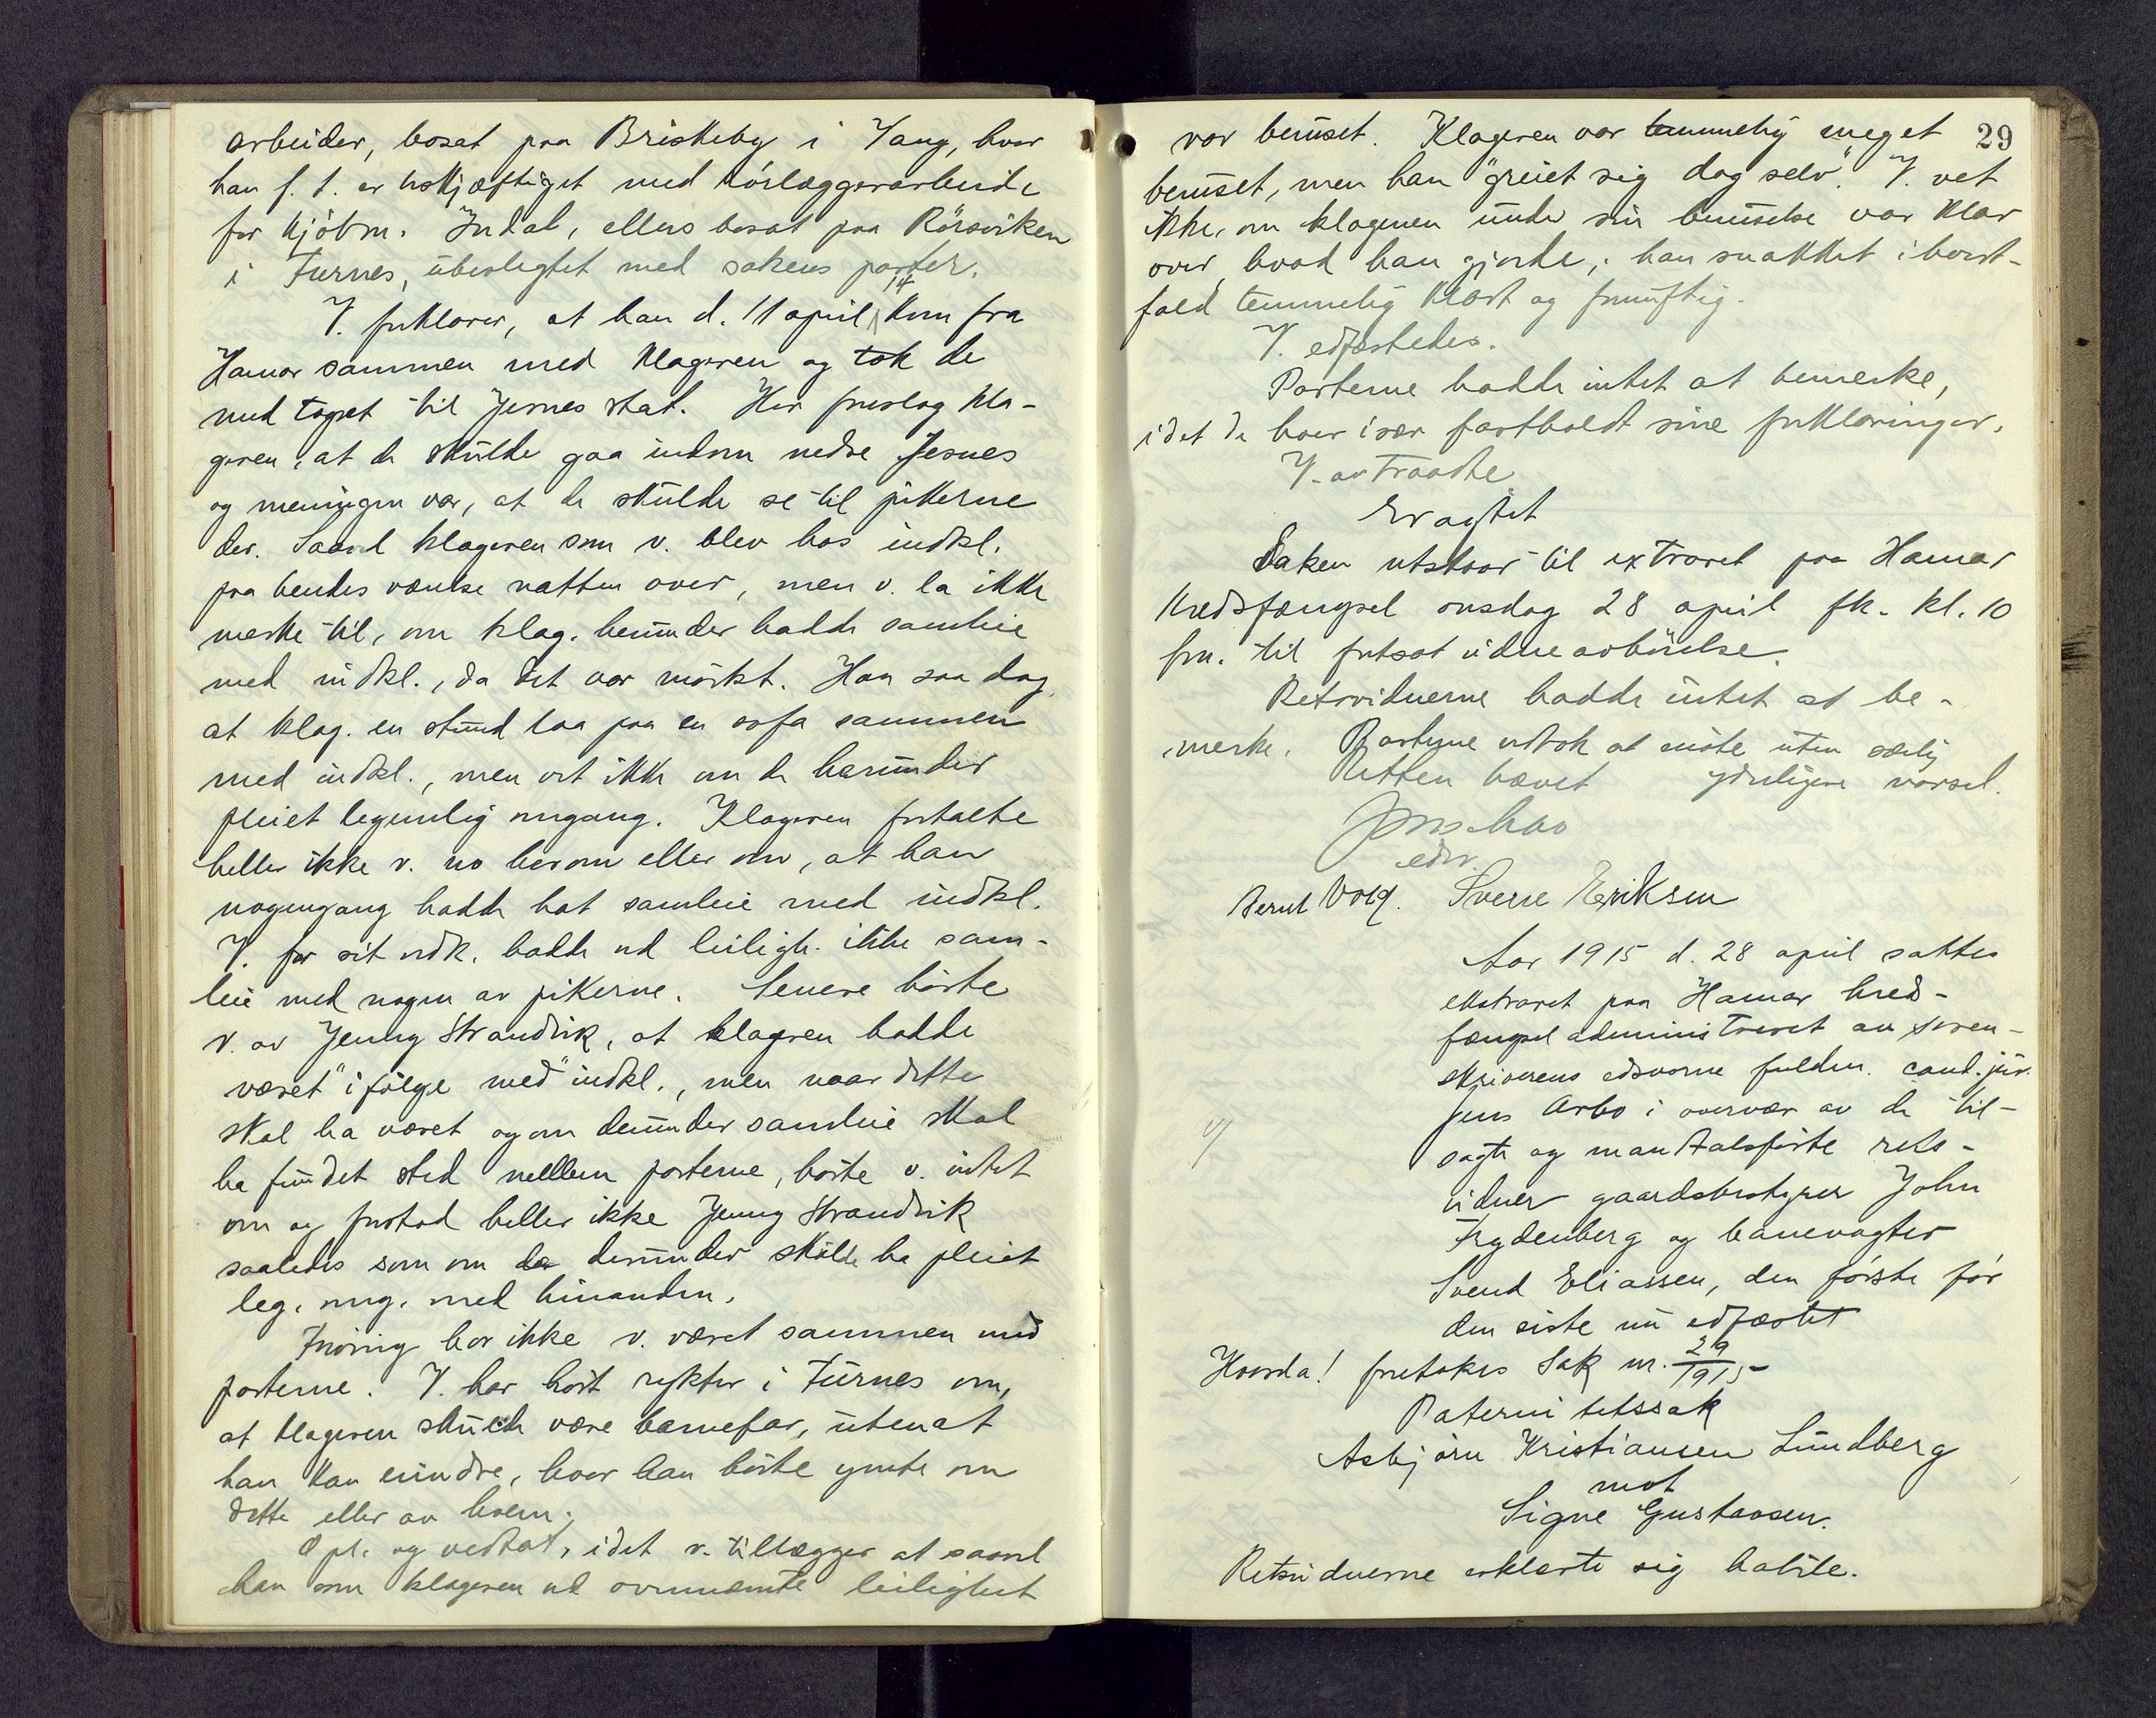 arbeider, bosat paa Briskeby i Vang, hvor
han f. t. er beskjæftiget med rörlæggerarbeide
for Kjöbm. Indal, ellers bosat paa Rörsviken
i Furnes, ubeslegtet med sakens parter.
V. forklarer, at han d. 11 april 14 kom fra
Hamar sammen med klageren og tok de
med toget til Jesnes stat. Her foreslog kla-
geren, at de skulde gaa indom nedre Jesnes
og meningen var, at de skulde se til pikerne
der. Saavel klageren som v. blev hos indkl.
paa hendes værelse natten over, men v. la ikke
merke til, om klag. herunder hadde samleie
med indkl., da det var mörkt. Han saa dog
at klag. en stund laa paa en sofa sammen
med indkl., men vet ikke om de herunder
pleiet legemlig omgang. Klageren fortalte
heller ikke v. no herom eller om, at han
nogengang hadde hat samleie med indkl.
V. for sit vedk. hadde ved leiligh. ikke sam-
leie med nogen av pikerne. Senere hörte
v. av Jenny Strandvik, at klageren hadde
været "i fölge med" indkl., men naar dette
skal ha været og om derunder samleie skal
ha fundet sted mellem parterne, hörte v. intet
om og forstod heller ikke Jenny Strandvik
saaledes som om de derunder skulde ha pleiet
leg. omg. med hinanden.
Forövrig har ikke v. været sammen med
parterne. V. har hört rykter i Furnes om,
at klageren skulde være barnefar, uten at
han kan erindre, hvor han hörte ymte om
dette eller av hvem.
Opl. og vedtat, idet v. tillægger at saavel
han som klageren ved ovennævnte leilighet
29
var beruset. Klageren var temmelig meget
beruset, men han "greiet sig dog selv". V. vet
ikke, om klageren under sin beruselse var klar
over, hvad han gjorde; han snakket i hvert-
fald temmelig klart og fornuftig.
V. edfæstedes.
Parterne hadde intet at bemerke,
idet de hver især fastholdt sine forklaringer.
V. avtraadte
Eragtet
Saken utstaar til extraret paa Hamar
Kredsfængsel onsdag 28 april fk. kl. 10
fm. til fortsat vidneavhörelse.
Retsvidnerne hadde intet at be-
merke. Parterne vedtok at möte uten særlig
Retten hævet yderligere varsel.
Jens Arbo
edsv.
Bernt Volg. Sverre Eriksen
Aar 1915 d. 28 april sattes
ekstraret paa Hamar kreds-
fængsel administreret av soren-
skriverens edsvorne fuldm. cand. jur.
Jens Arbo i overvær av de til-
sagte og mandtalsförte rets-
vidner gaardsbestyrer John
Frydenberg og banevogter
Svend Eliassen, den förste för
den siste nu edfæstet
Hvorda! foretokes Sak nr. 29/1915
Paternitetssak
Asbjörn Kristiansen Lundberg
mot
Signe Gustavsen.
Retsvidnerne erklærte sig habile.